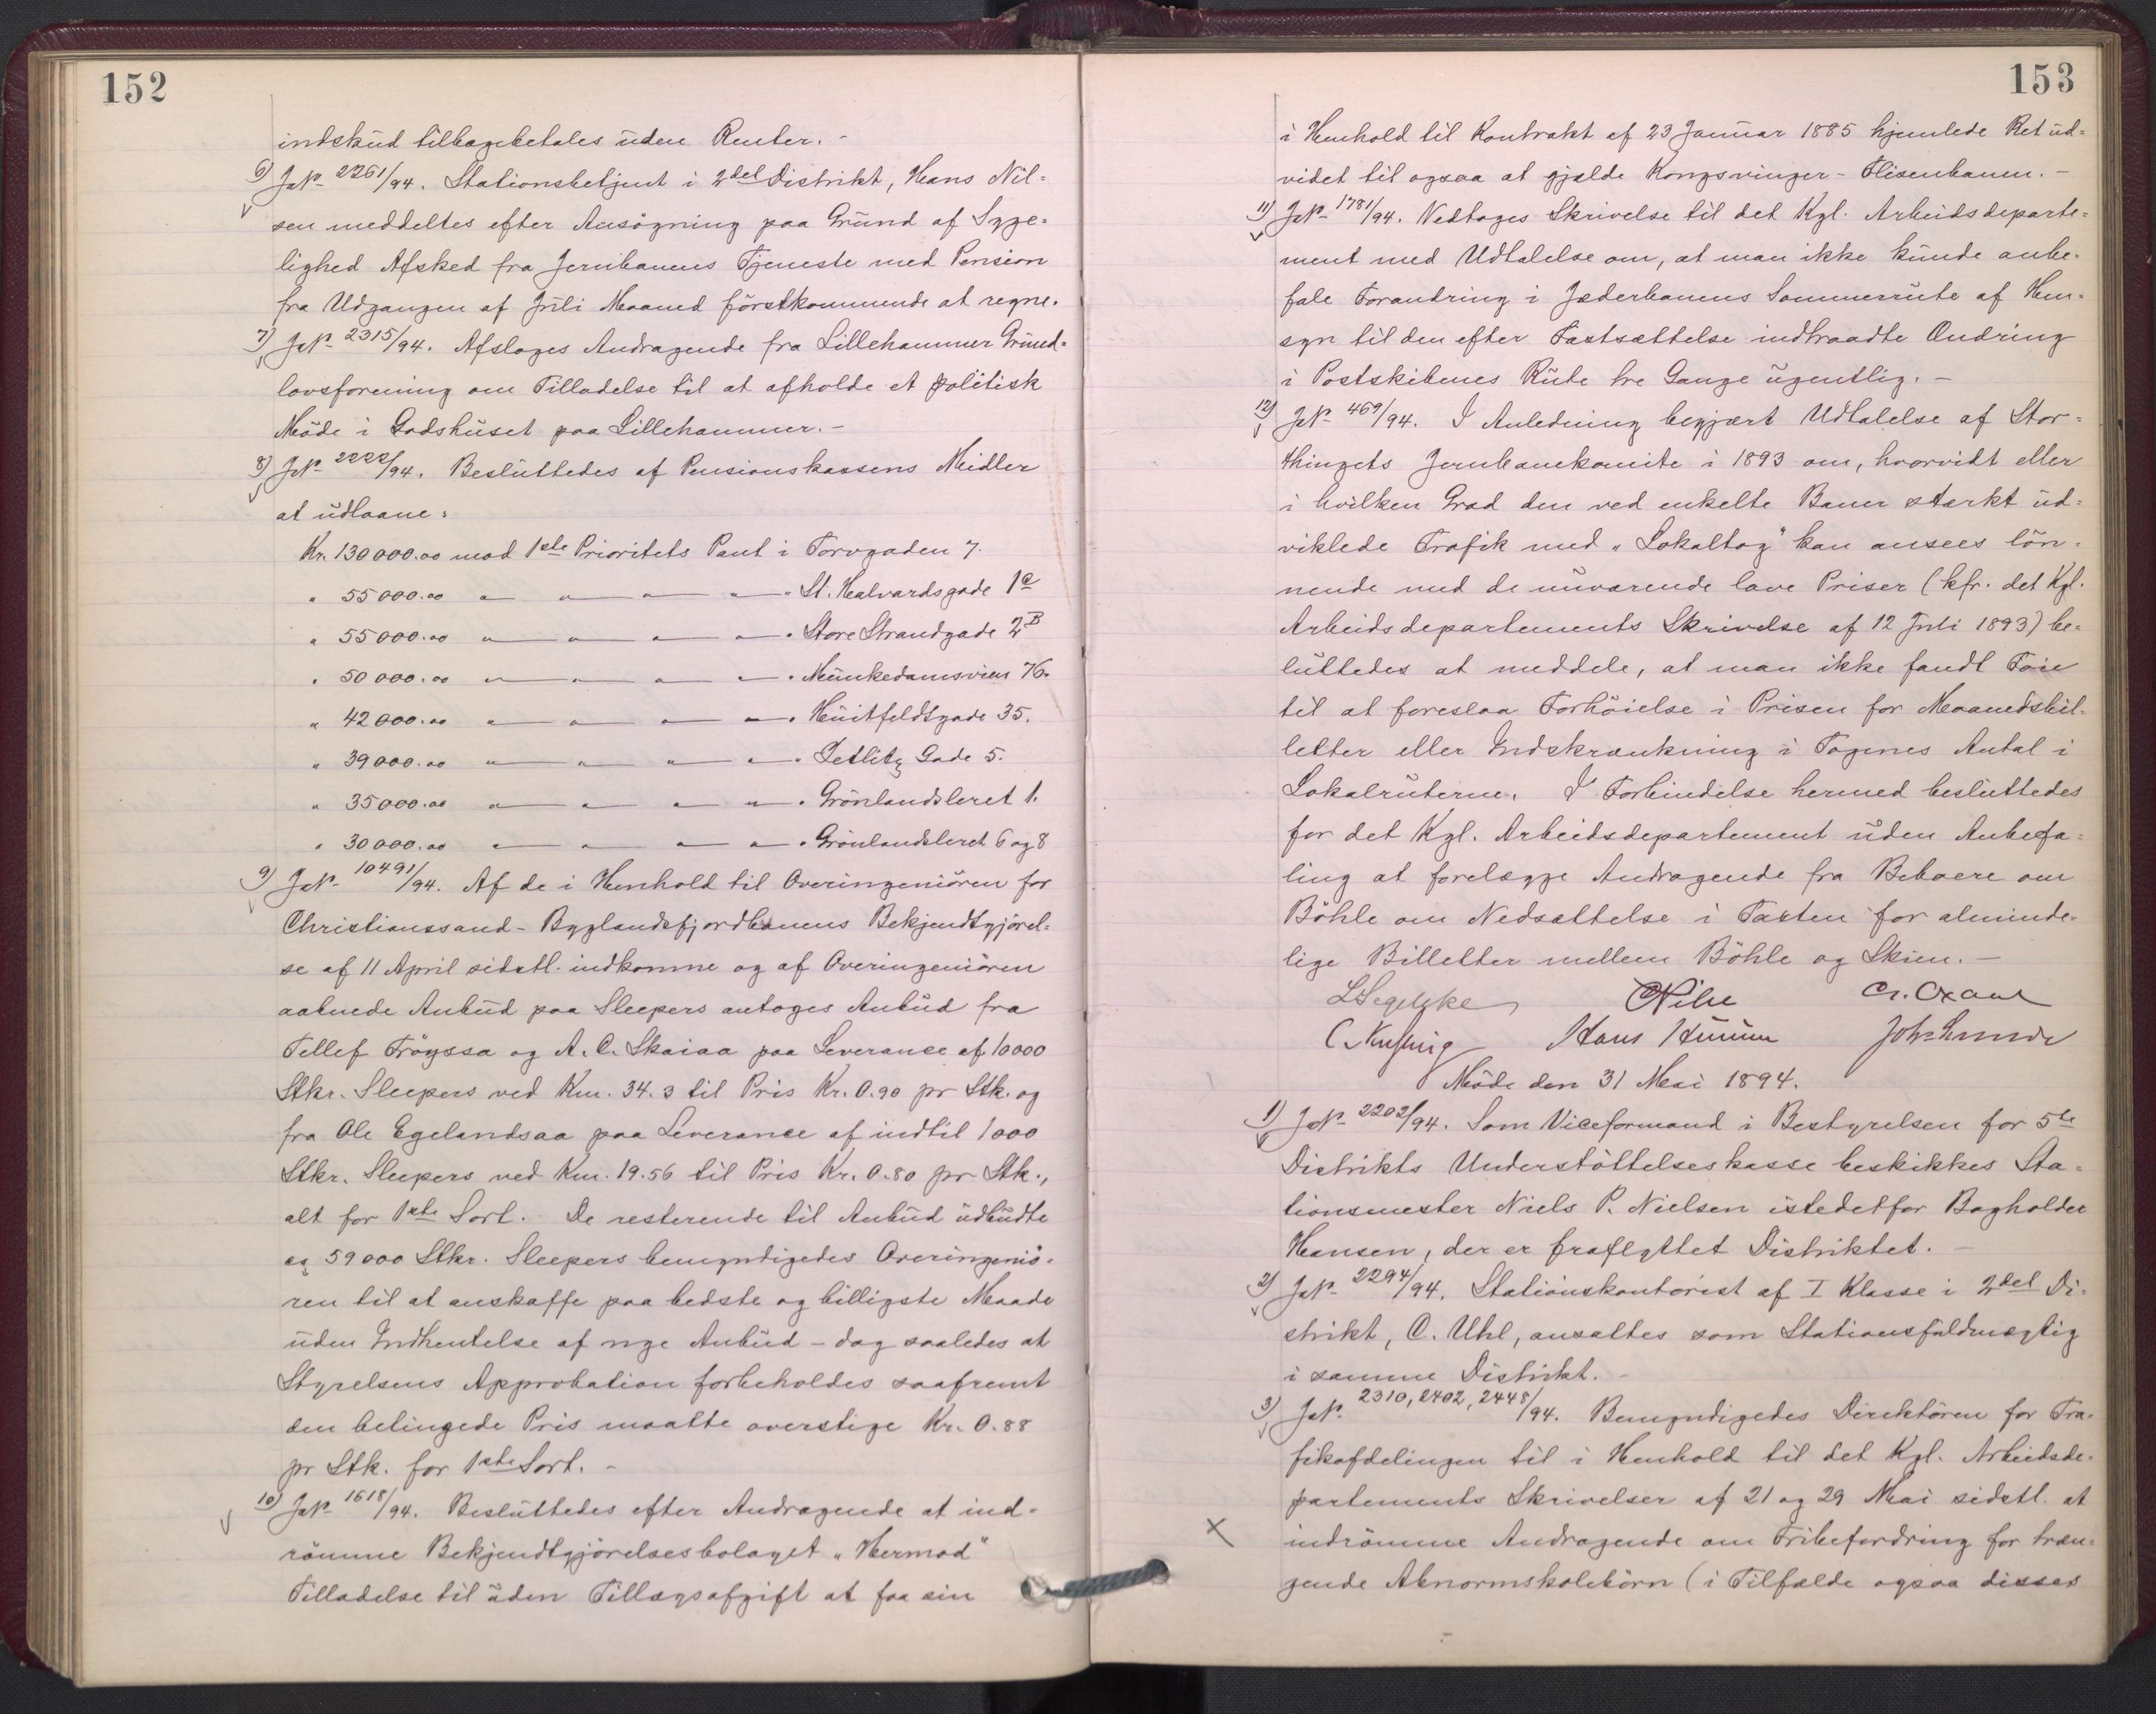 152
indskud tilbagebetales uden Renter. -
6) JNr 2261/94. Stationsbetjent i 2del Distrikt, Hans Nil=
sen meddeltes efter Ansögning paa Grund af Syge=
lighed Afsked fra Jernbanens Tjeneste med Pension
fra Udgangen af Juli Maaned förstkommende at regne.
7) JNr 2315/94. Afsloges Andragende fra Lillehammer Grund=
lovsforening om Tilladelse til at afholde et politisk
Möde i Godshuset paa Lillehammer. -
8) JNr 2222/94. Besluttedes af Pensionskassens Midler
at udlaane:
Kr. 130000.00 mod 1ste Prioritets Pant i Torvgaden 7.
" 55000.00 " " " " St. Halvardsgade 1c
" 55000.00 " " " " Store Strandgade 2B
" 50000.00 " " " " Munkedamsveien 76.
" 42000.00 " " " " Huitfeldtgade 35.
" 39000.00 " " " " Tetlitz Gade 5.
" 35000.00 " " " " Grönlandsleret 1.
" 30000.00 " " " " Grönlandsleret 6 og 8
9) JNr 10491/94. Af de i Henhold til Overingeniören for
Christianssand-Byglandsfjordbanens Bekjendtgjörel=
se af 11 April sidstl. indkomne og af Overingeniören
aabnede Anbud paa Sleepers antoges Anbud fra
Tellef Tröyssa og A. C. Skaiaa paa Leverance af 10000
Stkr. Sleepers ved Km. 34.3 til Pris Kr. 0.90 pr Stk. og
fra Ole Egelandsaa paa Leverance af indtil 1000
Stkr. Sleepers ved Km. 19.56 til Pris Kr. 0.80 pr Stk.,
alt for 1ste Sort. De resterende til Anbud udbudte
ca 59000 Stkr. Sleepers bemyndigedes Overingeniö=
ren til at anskaffe paa bedste og billigste Maade
uden Indhentelse af nye Anbud - dog saaledes at
Styrelsens Approbation forbeholdes saafremt
den betingede Pris maatte overstige Kr. 0.88
pr Stk. for 1ste Sort. -
10) JNr 1618/94. Besluttedes efter Andragende at ind=
römme Bekjendtgjörelsesbolaget "Hermod"
Tilladelse til uden Tillægsafgift at faa sin
153
i Henhold til Kontrakt af 23 Januar 1885 hjemlede Ret ud=
videt til ogsaa at gjælde Kongsvinger-Flisenbanen. -
11) JNr 1781/94. Vedtoges Skrivelse til det Kgl. Arbeidsdeparte=
ment med Udtalelse om, at man ikke kunde anbe=
fale Forandring i Jæderbanens Sommerrute af Hen=
syn til den efter Fastsættelse indtraadte Ændring
i Postskibenes Rute tre Gange ugentlig. -
12) JNr 469/94. I Anledning begjært Udtalelse af Stor=
thingets Jernbanekomite i 1893 om, hvorvidt eller
i hvilken Grad den ved enkelte Baner stærkt ud=
viklede Trafik med "Lokaltog" kan ansees lön=
nende med de nuværende lave Priser (kfr. det Kgl.
Arbeidsdepartements Skrivelse af 12 Juli 1893) be=
luttedes at meddele, at man ikke fandt Föie
til at foreslaa Forhöielse i Prisen for Maanedsbil=
letter eller Indskrænkning i Togenes Antal i
Lokalruterne. I Forbindelse hermed besluttedes
for det Kgl. Arbeidsdepartement uden Anbefa=
ling at forelægge Andragende fra Beboere om
Böhle om Nedsættelse i Taxten for alminde=
lige Billetter mellem Böhle og Skien. -
LSegelcke
Hans
Joh Lunde
Möde den 31 Mai 1894.
1) JNr 2202/94. Som Viceformand i Bestyrelsen for 5te
Distrikts Understöttelseskasse beskikkes Sta=
tionsmester Niels P. Nielsen istedetfor Bogholder
Hansen, der er fraflyttet Distriktet. -
2) JNr 2294/94. Stationskontorist af I Klasse i 2det Di=
strikt, C. Uhl, ansattes som Stationsfuldmægtig
i samme Distrikt. -
3) JNr 2310, 2402, 2448/94. Bemyndigedes Direktören for Tra=
fikafdelingen til i Henhold til det Kgl. Arbeidsde=
partements Skrivelser af 21 og 29 Mai sidstl. at
indrömme Andragende om Fribefordring for træn=
gende Abnormskolebörn (i Tilfælde ogsaa disses